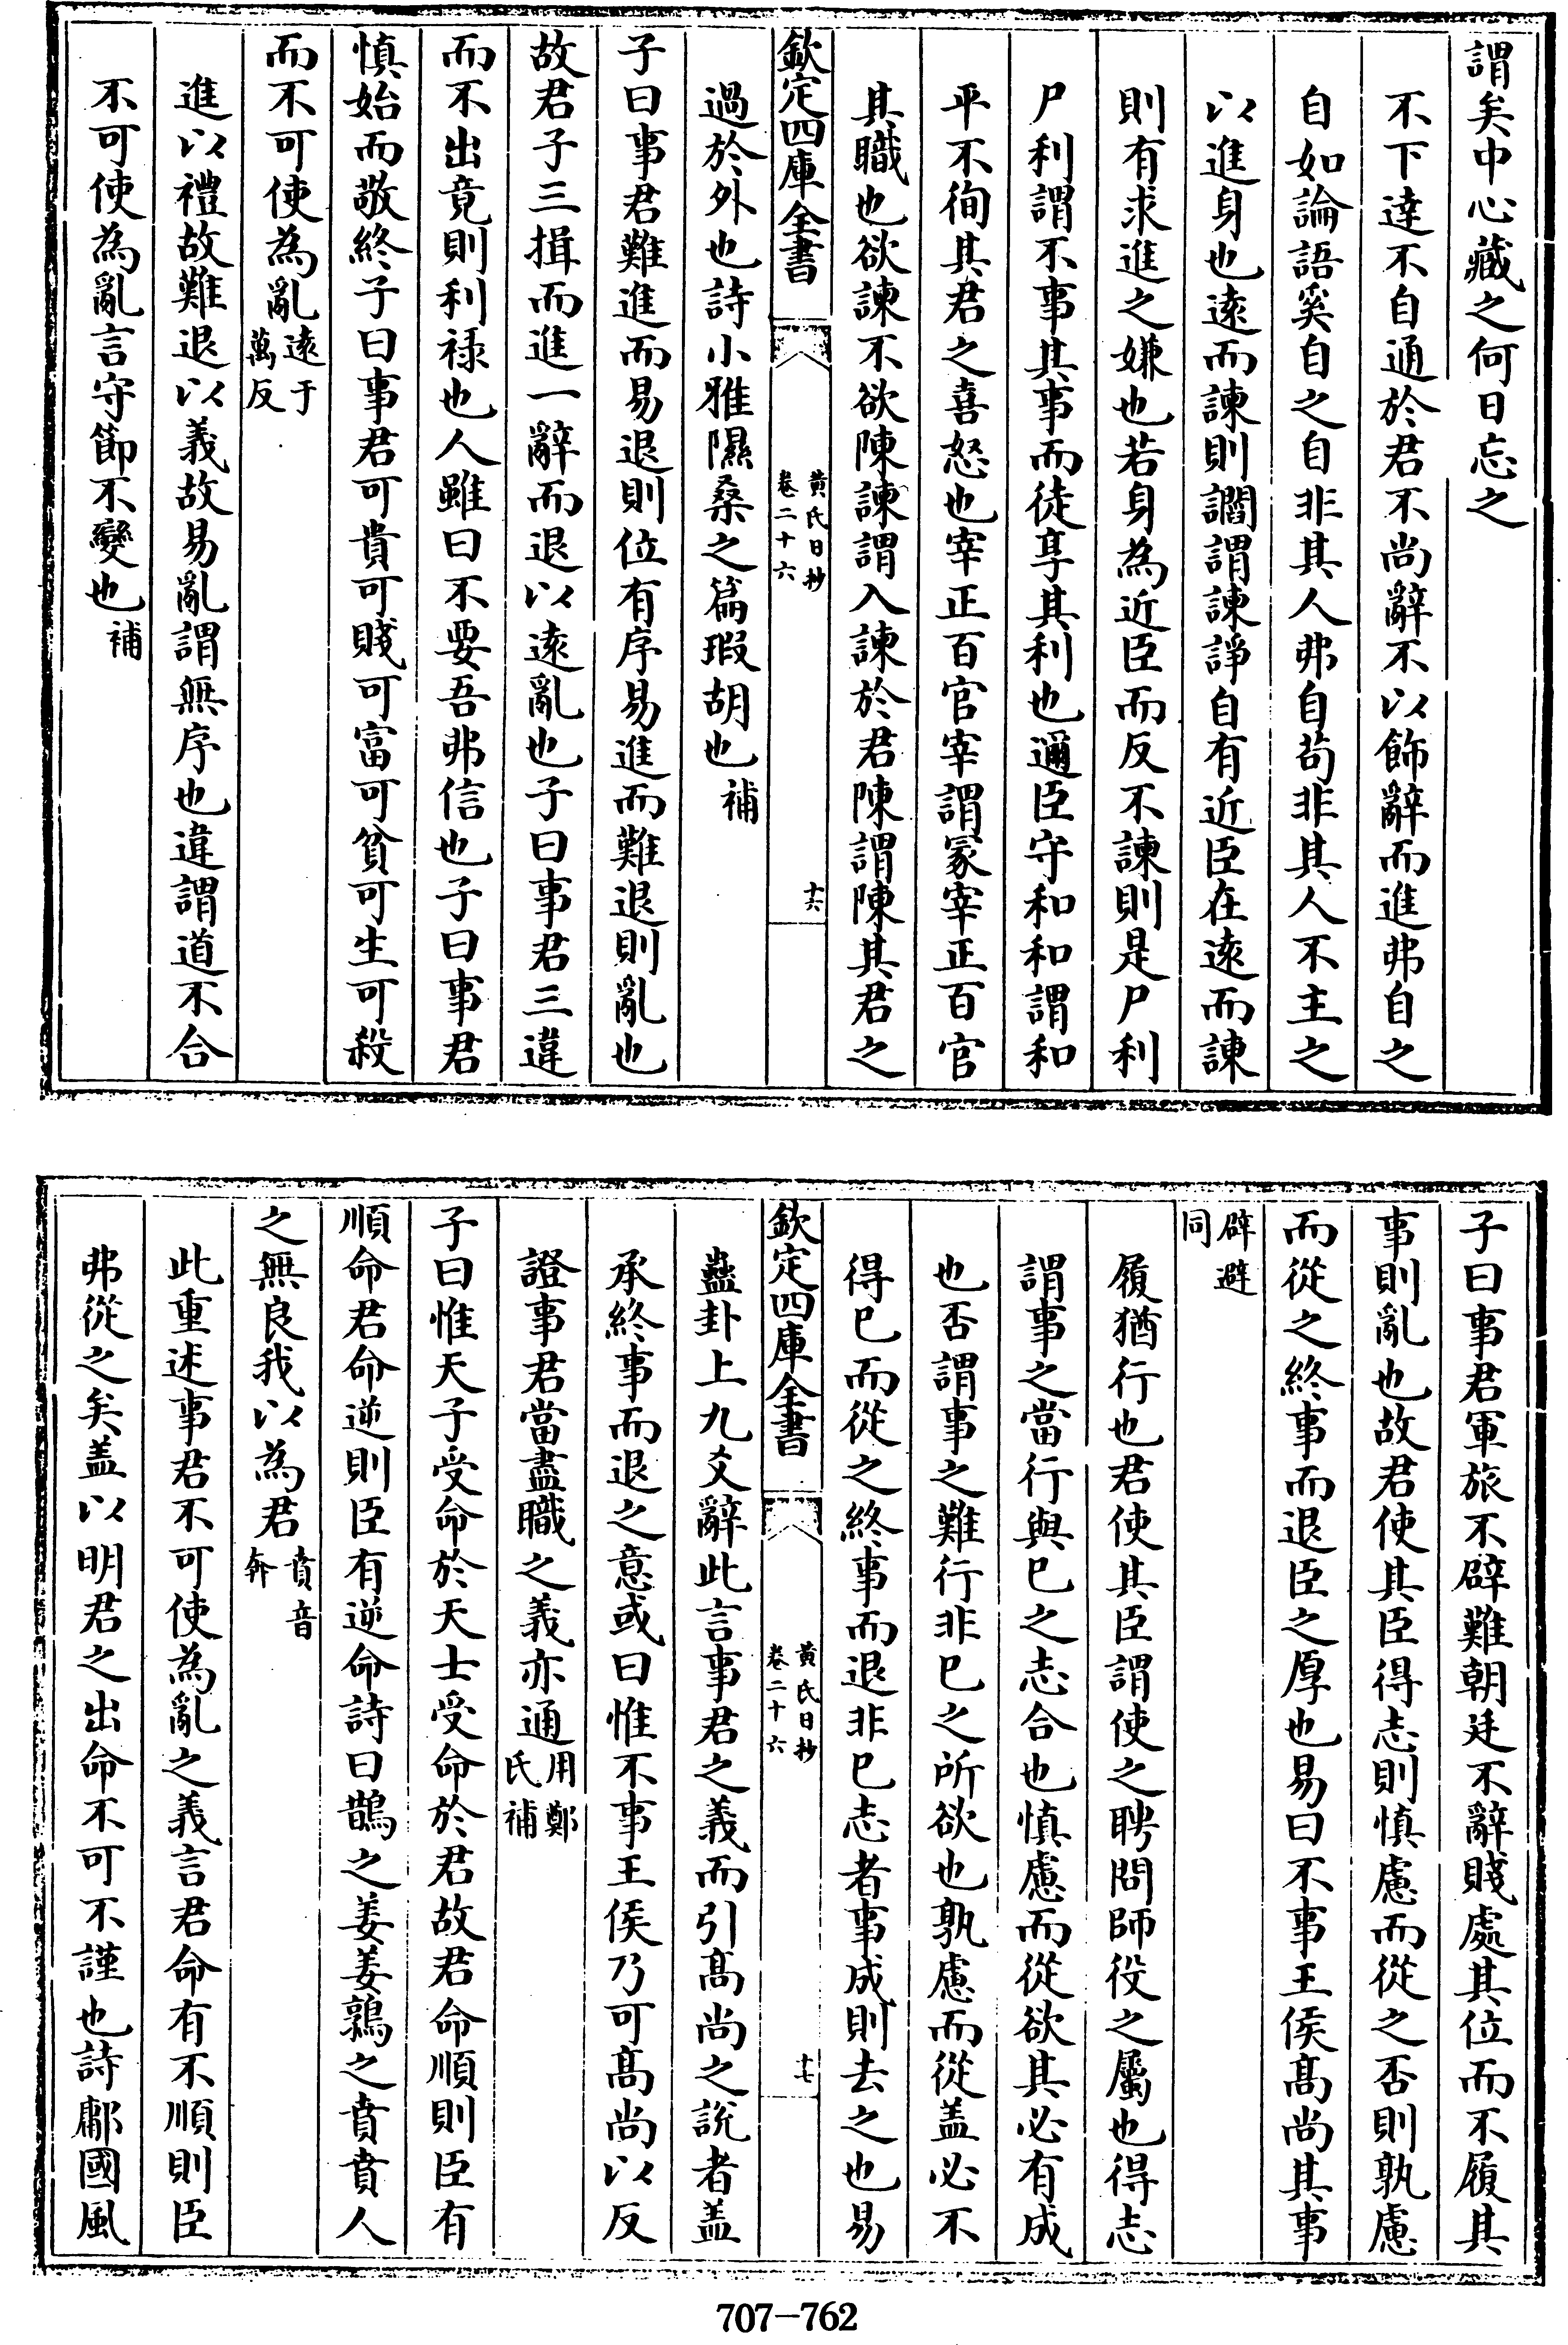 謂矣中心藏之何日忘之
不下達不自通於君不尚辭不以飾辭而進弗自之
自如論語奚自之自非其人弗自苟非其人不主之
以進身也遠而諫則讇謂諫諍自有近臣在遠而諫
則有求進之嫌也若身為近臣而反不諫則是尸利
尸利謂不事其事而徒享其利也邇臣守和和謂和
平不徇其君之喜怒也宰正百官宰謂冢宰正百官
其職也欲諫不欲陳諫謂入諫於君陳謂陳其君之
欽定四庫全書
黄氏日抄
卷二十六
十六
過於外也詩小雅隰桑之篇瑕胡也補
子曰事君難進而易退則位有序易進而難退則亂也
故君子三揖而進一辭而退以遠亂也子曰事君三違
而不出竟則利祿也人雖曰不要吾弗信也子曰事君
慎始而敬終子曰事君可貴可賤可富可貧可生可殺
而不可使為亂遠于萬反
進以禮故難退以義故易亂謂無序也違謂道不合
不可使為亂言守節不變也補
子曰事君軍旅不辟難朝廷不辭賤處其位而不履其
事則亂也故君使其臣得志則慎慮而從之否則孰慮
而從之終事而退臣之厚也易曰不事王侯髙尚其事
辟避同
履猶行也君使其臣謂使之聘問師役之屬也得志
謂事之當行與已之志合也慎慮而從欲其必有成
也否謂事之難行非已之所欲也孰慮而從盖必不
得已而從之終事而退非已志者事成則去之也易
欽定四庫全書
黄氏日抄
卷二十六
十七
蠱卦上九爻辭此言事君之義而引髙尚之說者盖
承終事而退之意或曰惟不事王侯乃可髙尚以反
證事君當盡職之義亦通用鄭氏補
子曰惟天子受命於天士受命於君故君命順則臣有
順命君命逆則臣有逆命詩曰鵲之姜姜鶉之賁賁人
之無良我以為君賁音奔
此重述事君不可使為亂之義言君命有不順則臣
弗從之矣盖以明君之出命不可不謹也詩鄘國風
707-762